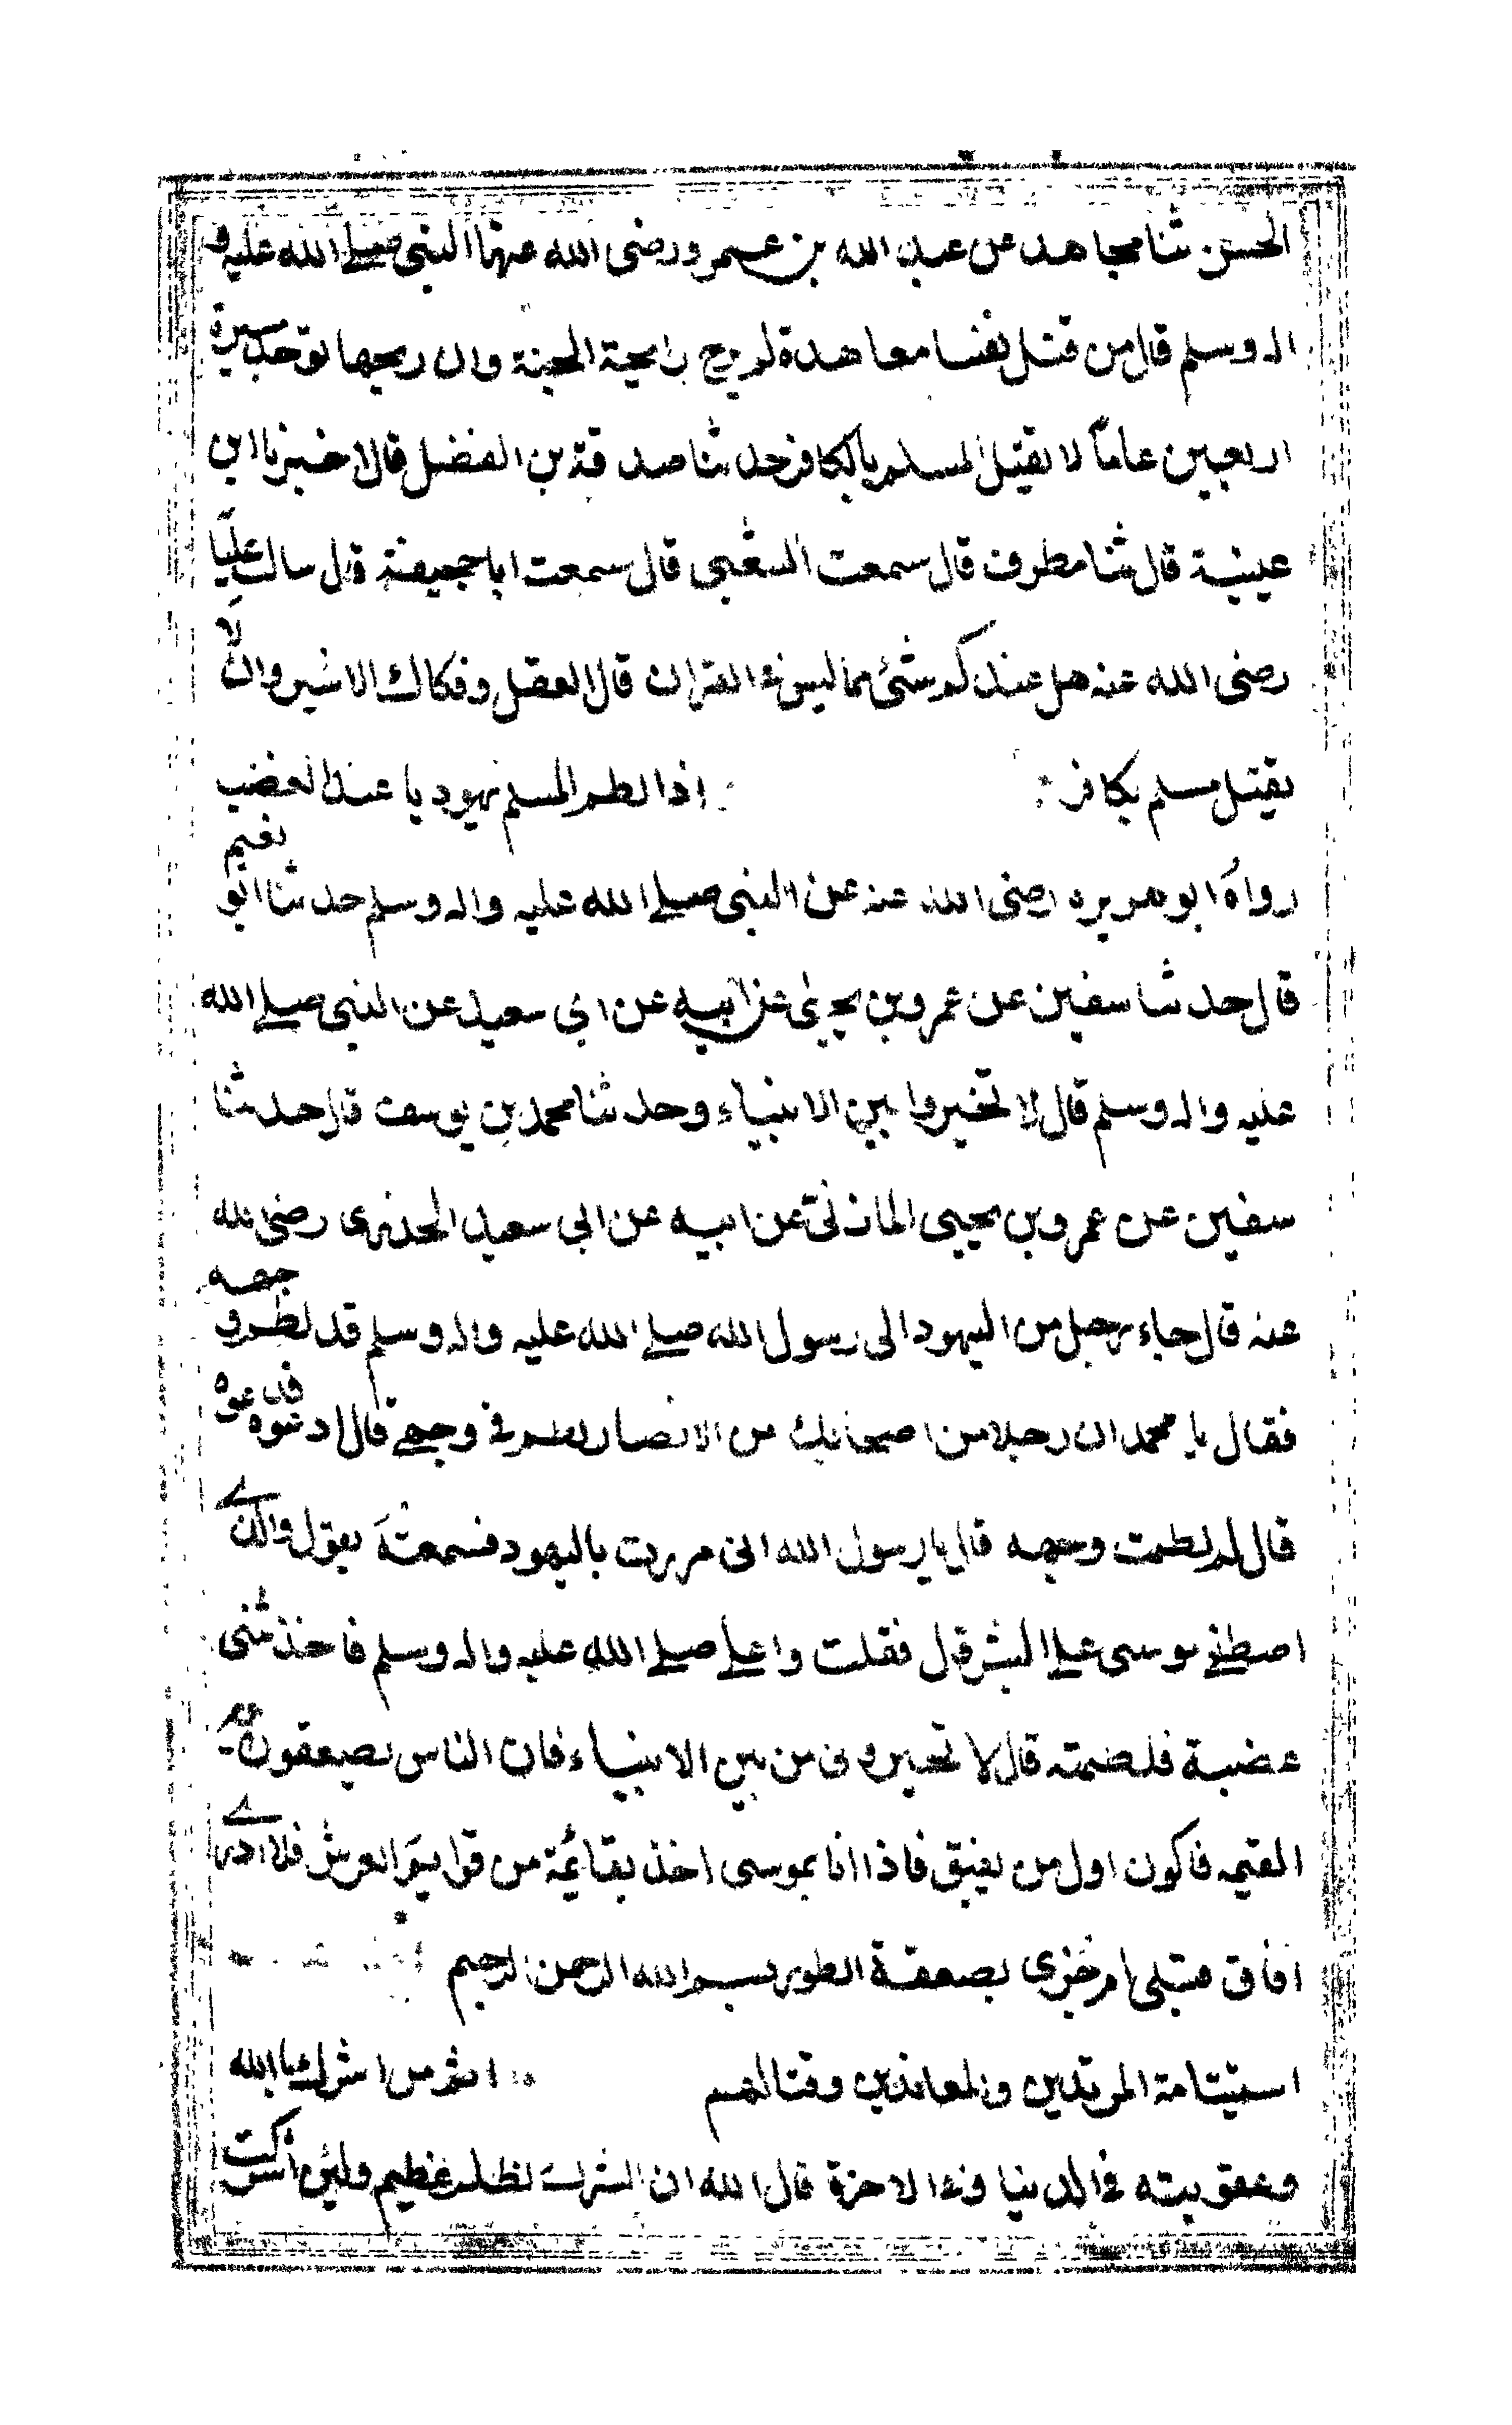 الحسن ثنا مجاهد عن عبد الله بن عمرو رضى الله عنهما النبى صلى الله عليه و
اله وسلم قال من قتل نفسا معاهدة لم يرح رايحة الجنة وان ريحها توجد مسيرة
اربعين عاماً لا يقتل المسلم بالكافر حد ثنا صدقة بن الفضل قال اخبرنا ابن
عيينة قال ثنا مطرف قال سمعت الشعبى قال سمعت ابا جحيفة قال سالت عليّا
رضى الله عنه هل عندكم شئ مما ليس فى القران قال العقل وفكاك الاسير وان لا
يقتل مسلم بكافر اذا لطم المسلم يهوديا عند الغضب
رواه ابو هريره رضى الله عنه عن النبى صلى الله عليه واله وسلم حد ثنا ابو نعيم
قال حد ثنا سفين عن عمرو بن يحيى عن ابيه عن ابى سعيد عن النبى صلى الله
عليه واله وسلم قال لا تخيروا بين الانبياء وحد ثنا محمد بن يوسف قال حد ثنا
سفين عن عمرو بن يحيى المازنى عن ابيه عن ابى سعيد الخدرى رضى الله
عنه قال جاء رجل من اليهود الى رسول الله صلى الله عليه واله وسلم قد لطم وجهه
فقال يا محمد ان رجلا من اصحابك من الانصار لطم فى وجهى قال ادعوه فدعوه
قال لم لطمت وجهه قال يا رسول الله انى مررت باليهود فسمعته يقول والذى
اصطفى موسى على البشر قال فقلت واعلى صلى الله عليه واله وسلم فاخذتنى
غضبة فلطمته قال لا تخيرونى من بين الانبياء فان الناس يصعقون يوم
القيمه فاكون اول من يفيق فاذا انا بموسى اخذ بقائمة من قوايم العرش فلا ادرى
افاق قبلى ام جزى بصعقة الطور بسم الله الرحمن الرحيم
استتابة المرتدين والمعاندين وقتالهم اثم من اشرك بالله
وعقوبته فى الدنيا وفى الاخرة قال الله ان الشرك لظلم عظيم ولئن اشركت